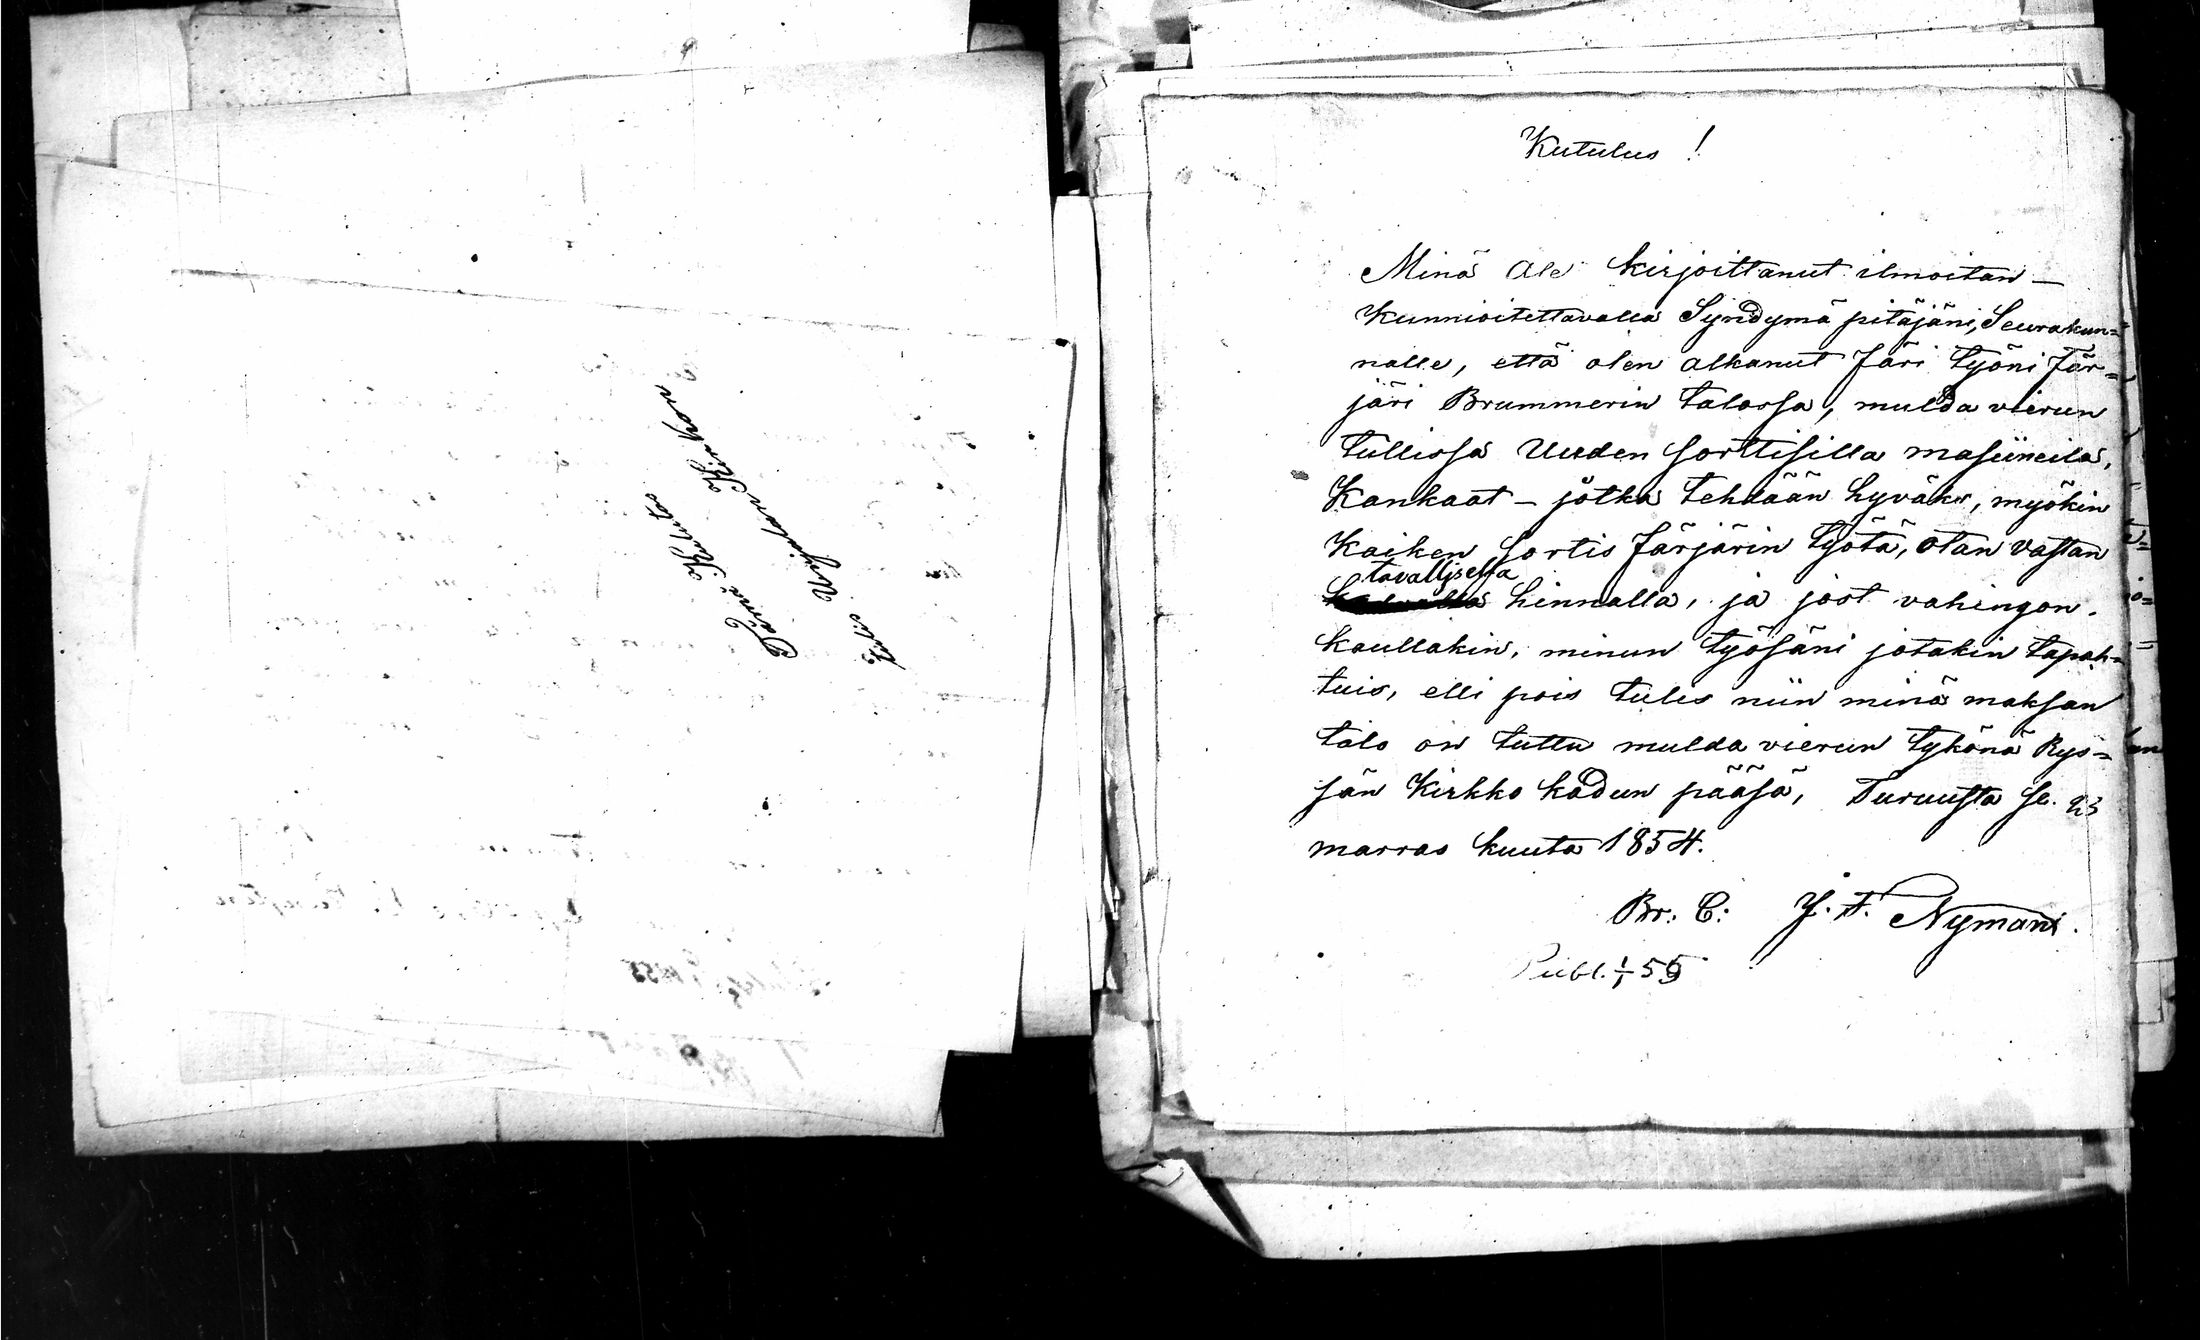 Tämä Kulutus
Tulis Urjalan Kirkon
Kutulus!
Minä Ale kirjoittanut ilmoitan –
Kunnioitettavalla Syndymä pitäjäni, Seurakun=
nalle, että olen alkanut Färi työni Fär=
järi Brummerin talossa, mulda vierun
tullissa Uuden sorttisilla masiineila,
Kankaat – jotka tehdään hyväks, myökin
Kaiken sortis Färjärin työtä, otan vastan
tavallisella
hinnalla, ja jost vahingon.
kaullakin, minun työsäni jotakin tapah=
tuis, elli pois tules niin minä maksan
talo on tuttu mulda vierun tykönä Rys=
sän Kirkko kadun pääsä, Turuusta se. 23
marras kuuta 1854.
Br. C: J. F. Nyman.
Publ. 1/1 55